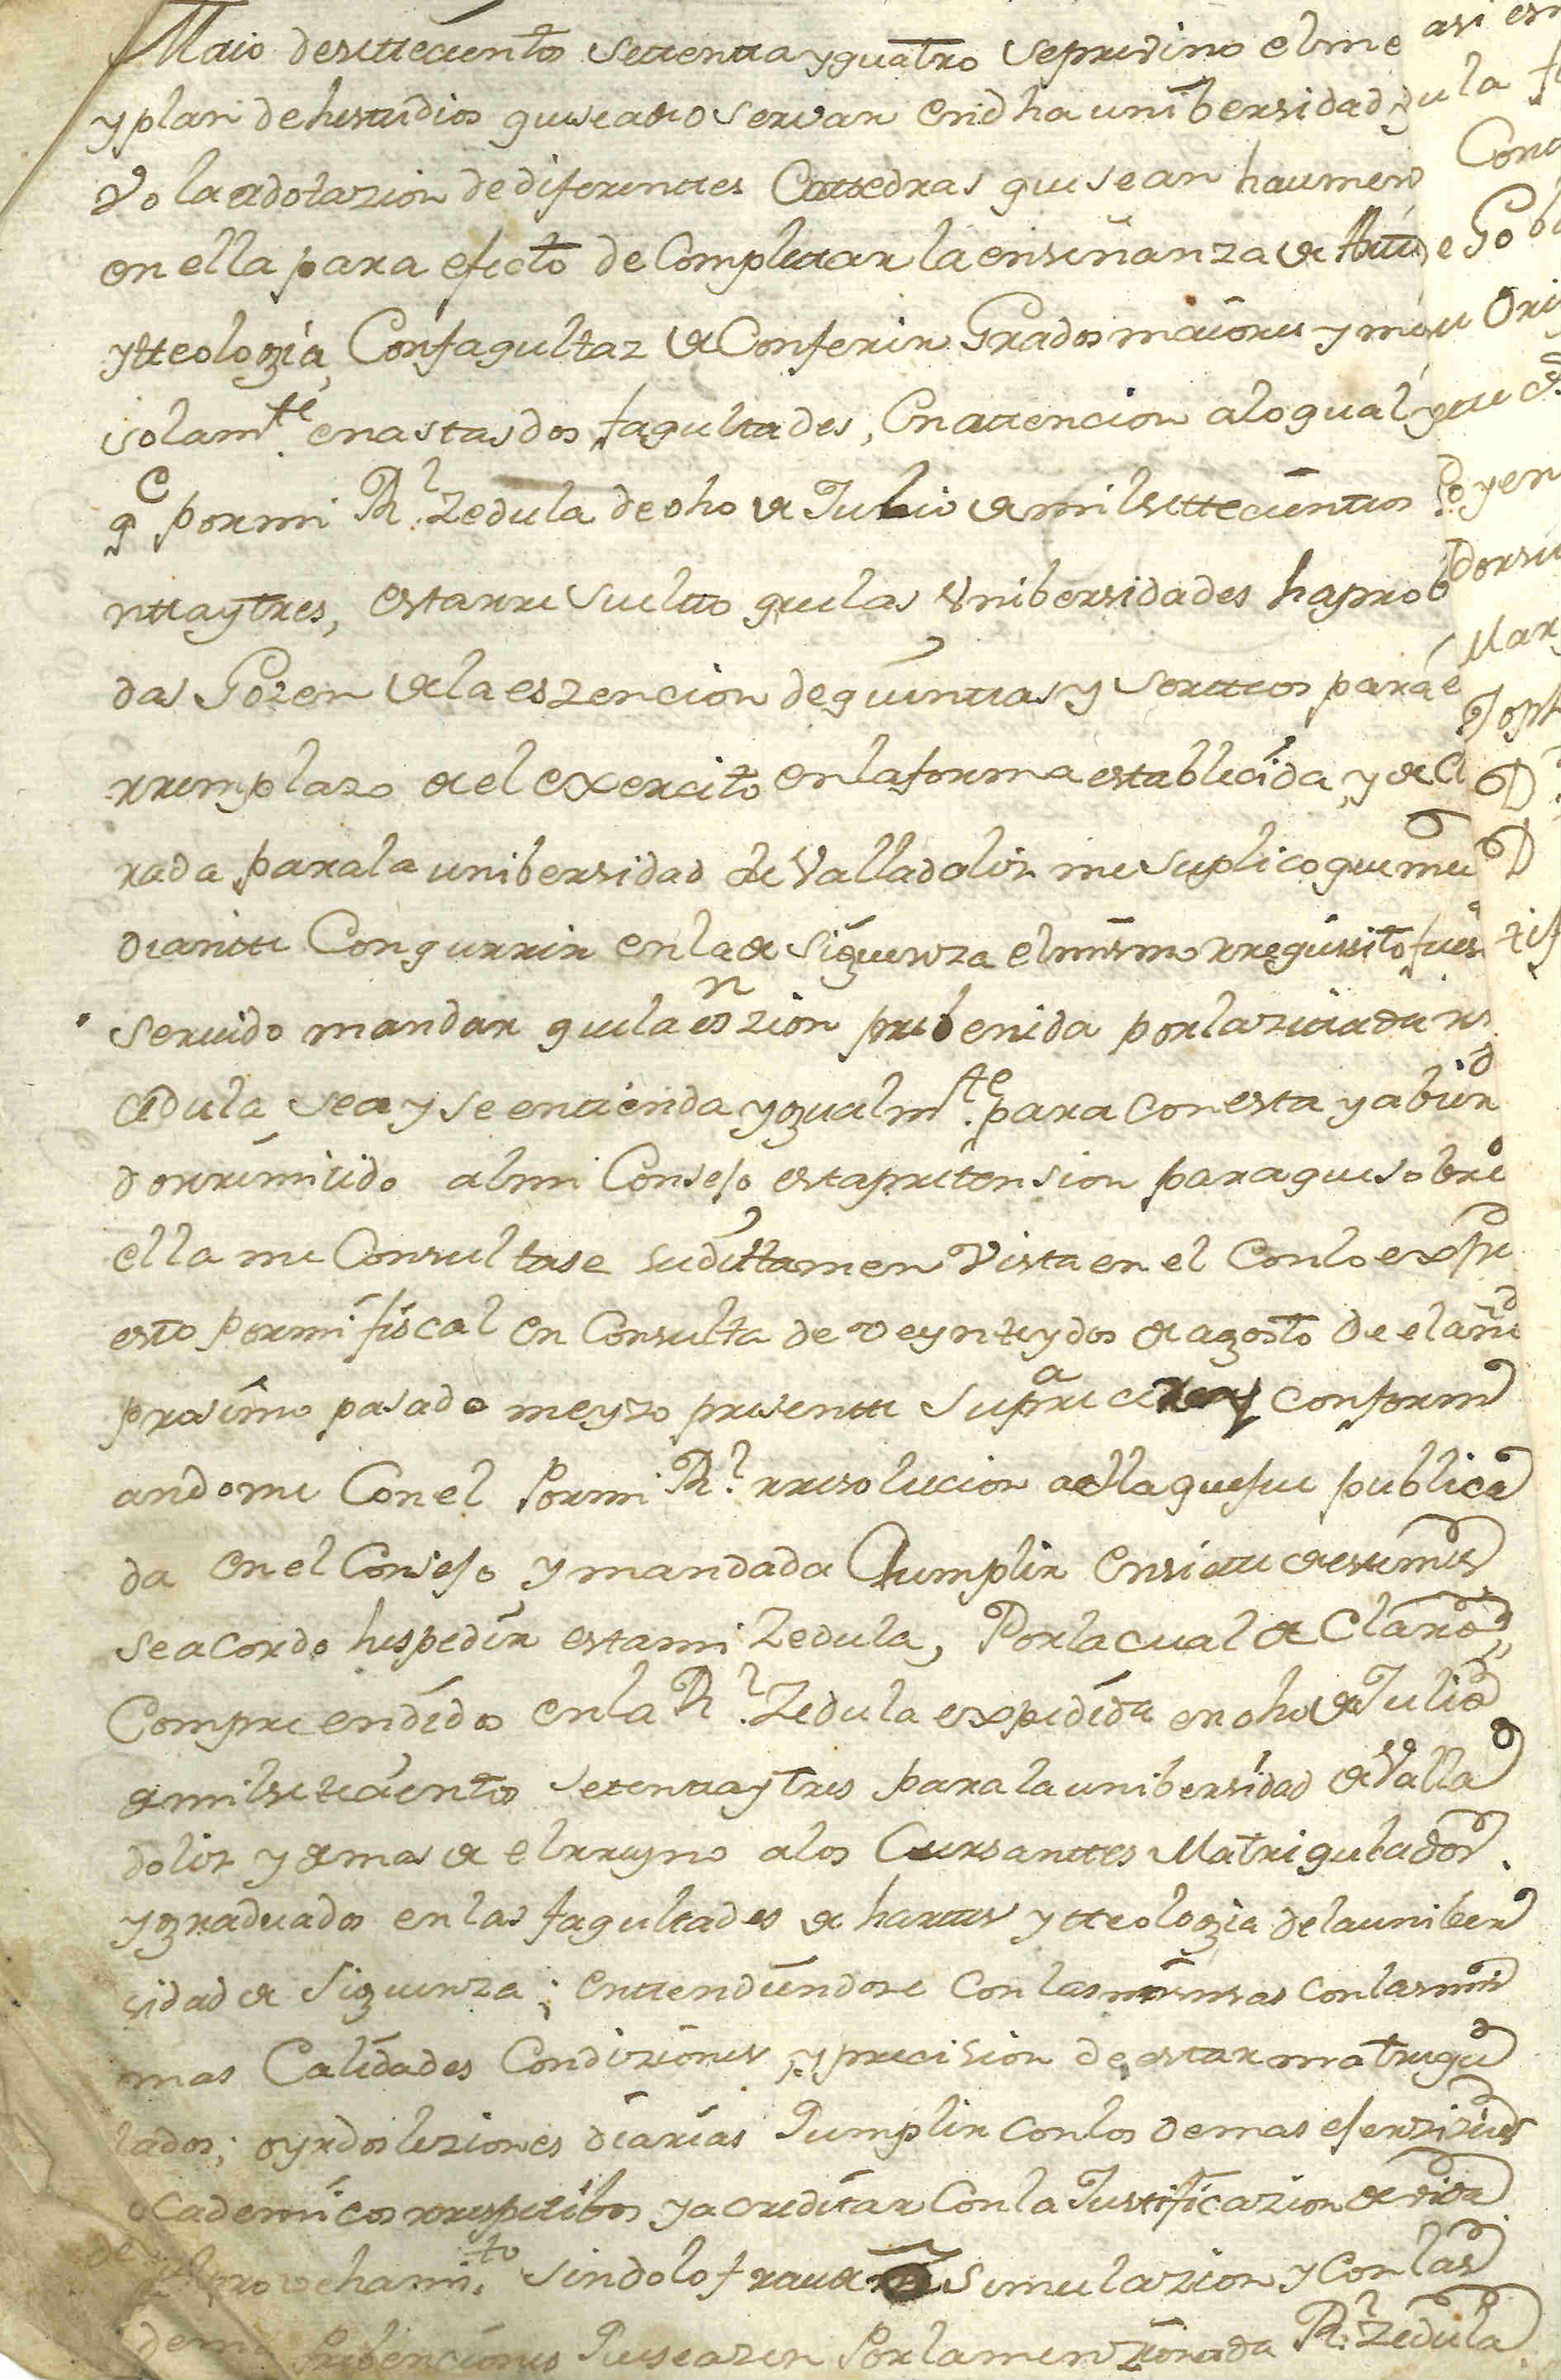 Maio desettecientos settentta y quatro seprevino elme
y plan dehestudios quese ao de oservan endha unibersidad y
Vo la adotazion de diferenttes Cattedras que se an haumen
en ella para efecto de Complettar la enseñanza de Arte
ytteolozia, Con fagultaz de Conferir Grados maiores y me
solamte enastas dos fagultades, En attencion alo qual
qe por mi Rl Zedula de oho de Julio de mil settecienttos
nttaytres, esta rresueltto que las Unibersidades haprob
das Gozen de la eszencion de quinttas y sortteos para e
rremplazo de el exercito en la forma establecida, y decl
rada para la unibersidad de Valladoliz me suplico que me
diantte Congurrir en la de Siguenza el mismo rrequissito fues
servido mandar que la esnzion prebenida por la zitada rs
cedula sea y se entienda ygualmte para con esta y abien
do rremitido al mi Consejo esta pretension para que sobre
ella me Consultase su dittamen Vista en el Con lo expu
esto por mi fiscal en Consulta de veynte y dos de agosto de el año
prosimo pasado me yzo presentte su parecer y conform
andome Con el Por mi Rl rresolucion a ella que fue publica
da en el Consejo y mandada Cumplir en siette de este mes
se acordo hespedir esta mi Zedula, Por la cual declaro
Compreendidos en la Rl Zedula expedida en oho de Julio
de mil setecientos setenttaytres para la unibersidad de Valla
doliz y demas de el rreyno a los Cursanttes Matrigulados
y graduados en las fagultades de harttes y tteolozia de la uniber
sidad de Siguenza; enttendiendose Con las mismas con las mis
mas Calidades Condiziones y precision de estar matrigu
lados; oyr dos leziones diarias Cumplir con los demas ejerzizios
academicos rrespetibos y acreditar Con la Justificazion devida
de Aprovechamito sindolo fraude simulazion y con las
demas Prebenciones Que seazen Por la menzionada Rl Zedula
asi es
Cona
Ori
y en
Mar
D
D